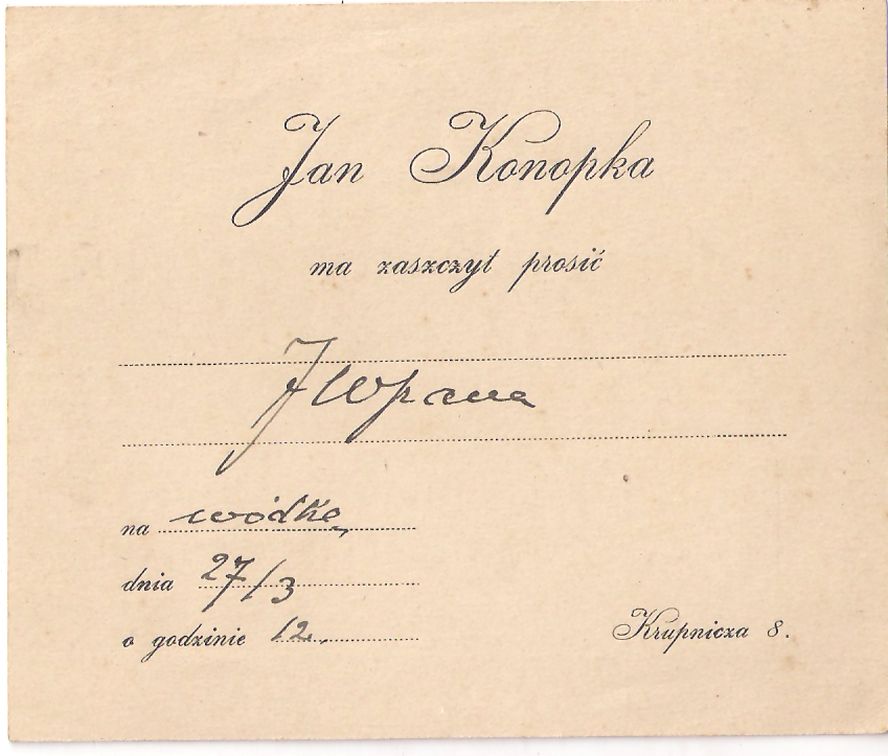 Jan Konopka
ma zaszczyt prosić
JWpana
na wódkę
dnia 27/3
o godzinie 12.
Krupnicza 8.